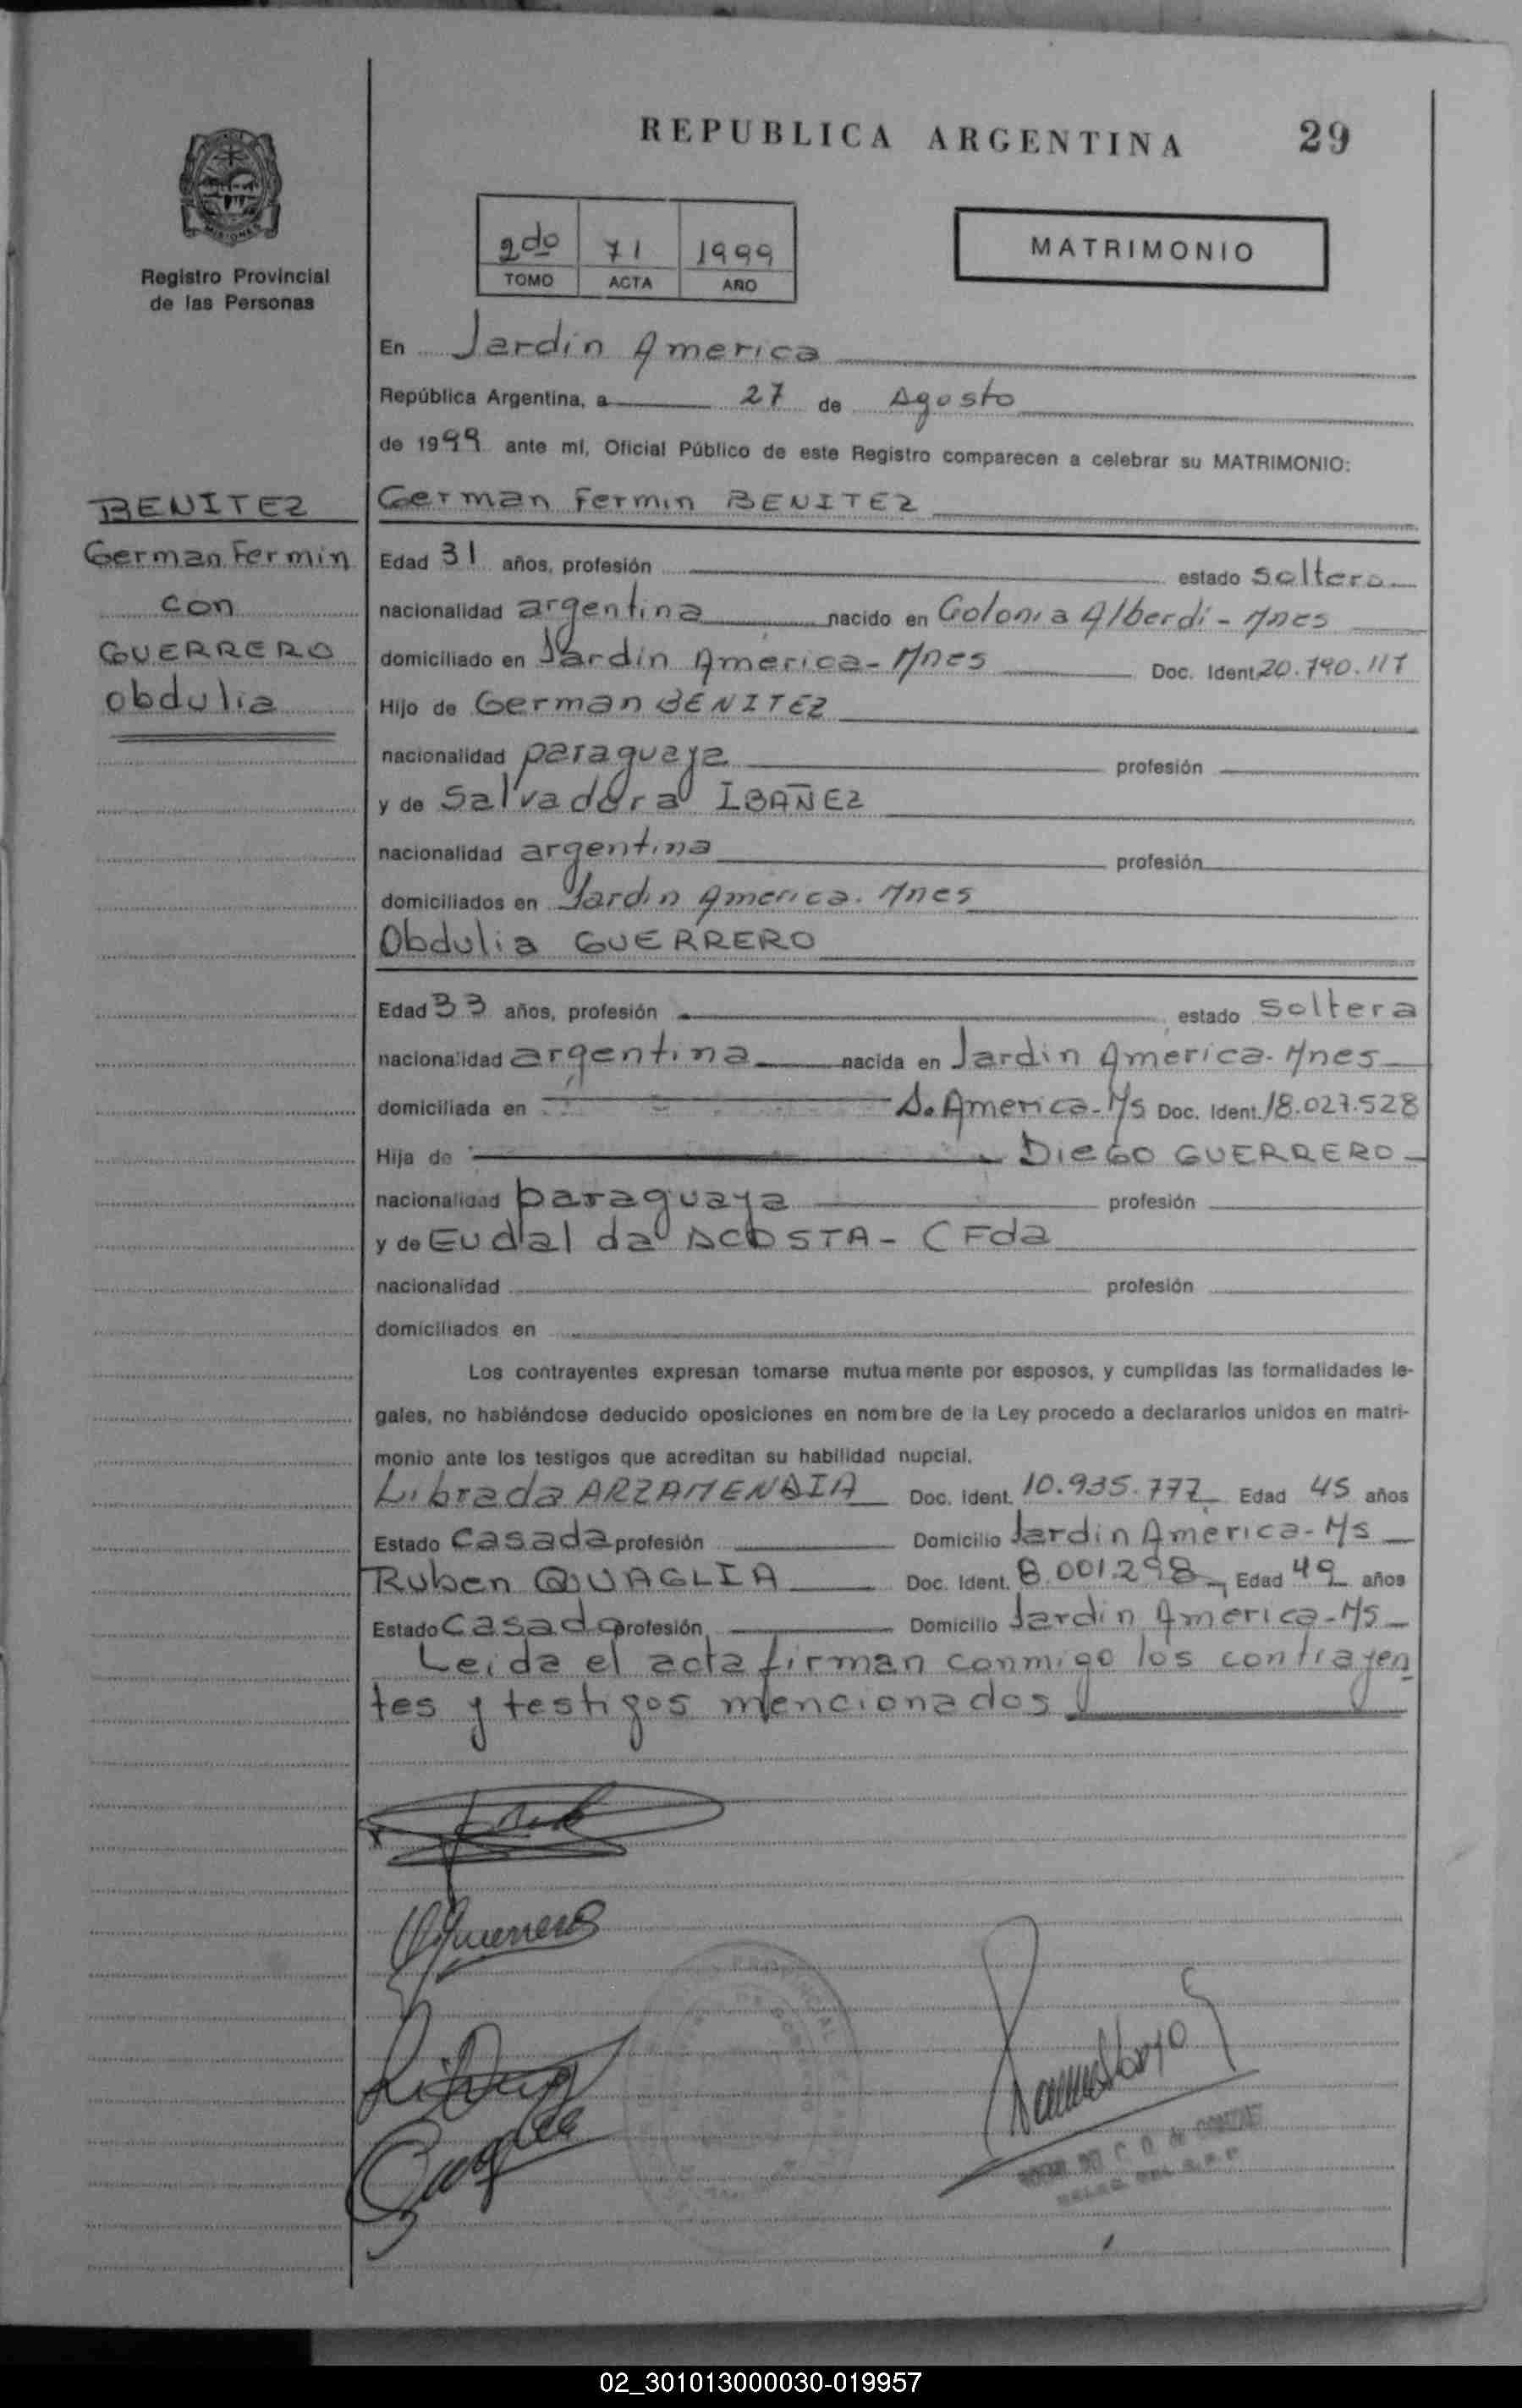 REPUBLICA ARGENTINA 29
MISIONES
Registro Provincial
de las Personas
2do 71 1999
TOMO ACTA AÑO
MATRIMONIO
En Jardin America
República Argentina, a 27 de Agosto
de 1999 ante mí, Oficial Público de este Registro comparecen a celebrar su MATRIMONIO:
BENITEZ
German Fermin
con
GUERRERO
Obdulia
German Fermin BENITEZ
Edad 31 años, profesión estado soltero
nacionalidad argentina nacido en Colonia Alberdi - Mnes
domiciliado en Jardin America - Mnes Doc. Ident. 20.790.117
Hijo de German BENITEZ
nacionalidad paraguaya profesión
y de Salvadora IBAÑEZ
nacionalidad argentina profesión
domiciliados en Jardin America. Mnes
Obdulia GUERRERO
Edad 33 años, profesión estado soltera
nacionalidad argentina nacida en Jardin America. Mnes
domiciliada en J. America - Ms Doc. Ident. 18.027.528
Hija de DIEGO GUERRERO
nacionalidad paraguaya profesión
y de Eudalda ACOSTA - (Fda
nacionalidad profesión
domiciliados en
Los contrayentes expresan tomarse mutuamente por esposos, y cumplidas las formalidades le-
gales, no habiéndose deducido oposiciones en nombre de la Ley procedo a declararlos unidos en matri-
monio ante los testigos que acreditan su habilidad nupcial.
Librada ARZAMENDIA Doc. Ident. 10.935.777 Edad 45 años
Estado Casada profesión Domicilio Jardin America - Ms
Ruben QUAGLIA Doc. Ident. 8.001.298 Edad 49 años
Estado Casado profesión Domicilio Jardin America - Ms
Leida el acta firman conmigo los contrayen
tes y testigos mencionados
02_301013000030-019957